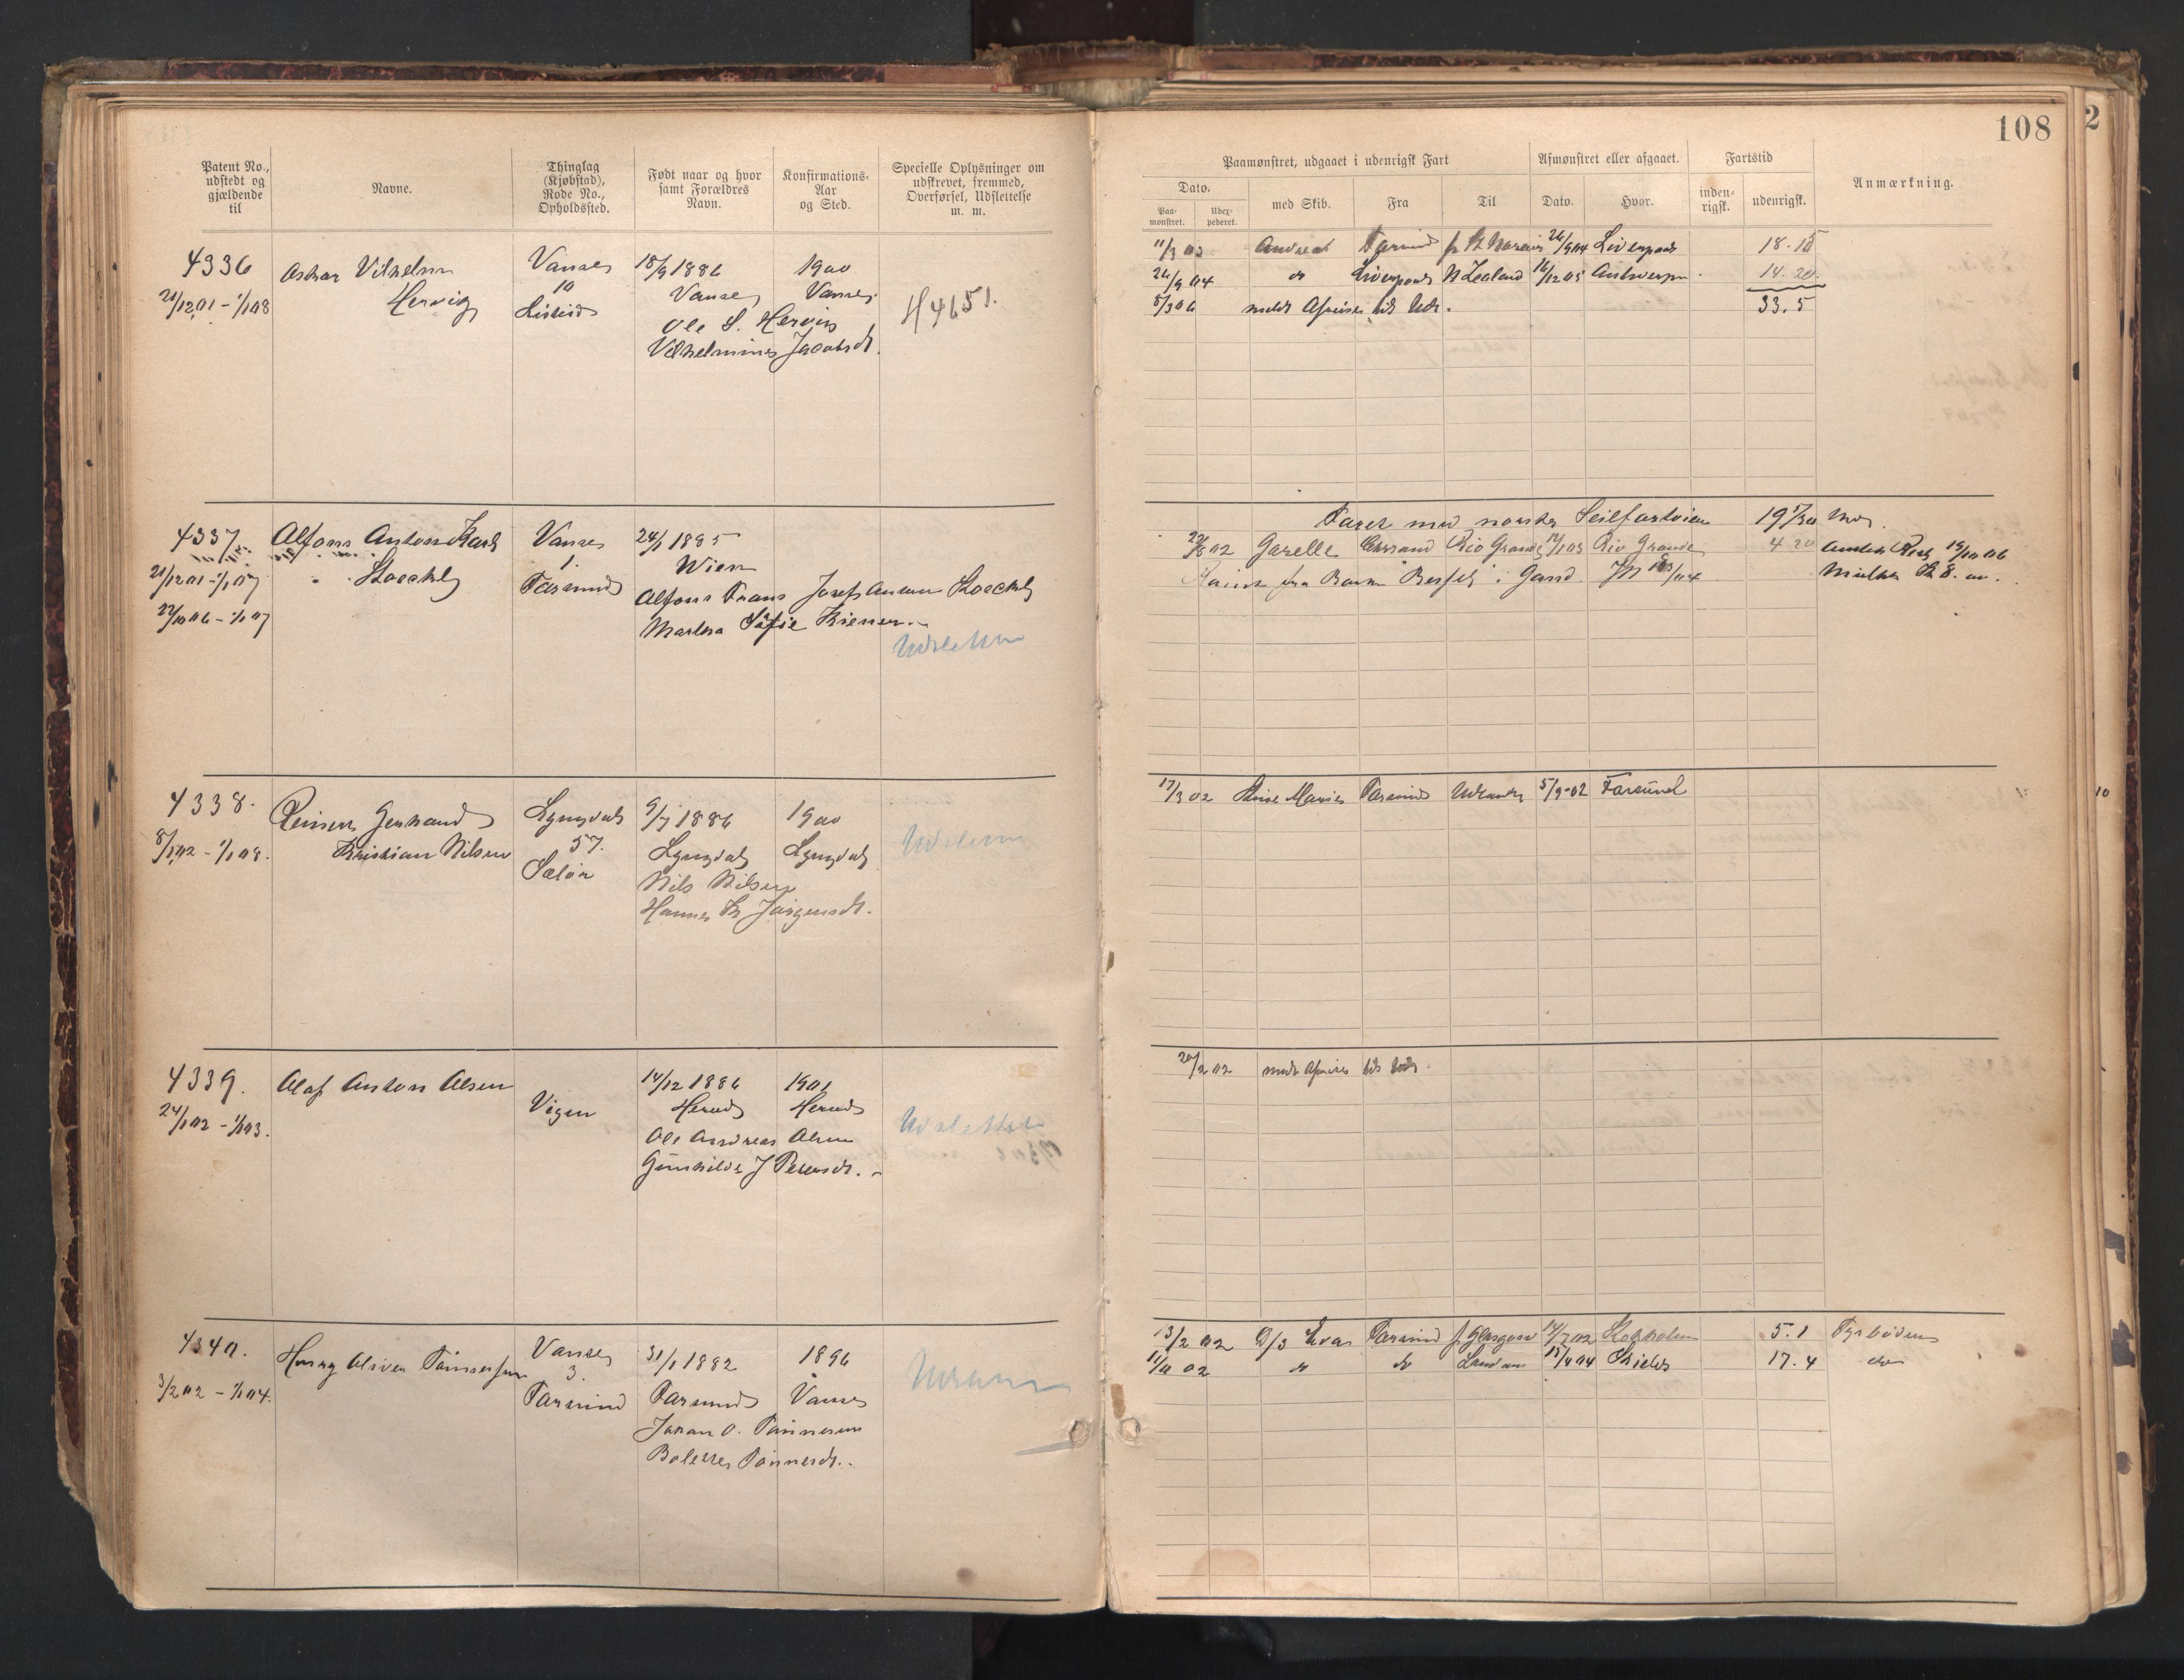 108
2
Patent No., udstedt og gjældende til
Navne.
Thinglag (Kjøbstad), Rode No., Opholdssted.
Født naar og hvor samt Forældres Navn.
Konfirmations-Aar og Sted.
Specielle Oplysninger om udskrevet, fremmed, Overførsel, Udslettelse m. m.
Paamønstret, udgaaet i udenrigsk Fart
Afmønstret eller afgaaet.
Fartstid
Anmærkning.
Dato.
Paa-mønstret.
Udex-pederet.
med Skib.
Fra
Til
Dato.
Hvor.
inden-rigsk.
udenrigsk.
4336
21/12 01 - 1/1 08
Oskar Vilhelm
Hervig
Vanse
10
18/9 1886
Vanse
Ole S. Hervig
Vilhelmine Jacobsdt.
1900
Vanse
H4651.
11/3 03 Farsund 26/9 04 Liverpool 18.15
26/9 04 do Liverpool N Zealand 16/12 05 Antwerpen 14.20
5/3 06 meldt Afreise til Udl. 33.5
4337.
21/12 01 - 1/1 07
22/10 06 - 1/1 07
Alfons Anton Karl
Stoeckl
Vanse
1.
Farsund
24/1 1885
Wien
Alfons Frans Josef Anton Stoeckl
Martha Sofie Kiener
Udslettet
Faret med norske Seilfartøier
22/8 02 Gazelle Rio Grande Rio Grande 4 20
4338.
8/1 02 - 1/1 08.
Reinert Gerhard
Kristian Nilsen
Lyngdal
57.
Seløe
9/7 1886
Lyngdal
Nils Nilsen
Hanne K Jørgensdt.
1900
Lyngdal
17/3 02 Anne Marie Farsund 5/9-02 Farsund
4339.
24/1 02 - 1/1 03.
Olaf Anton Olsen
Vigen
14/12 1886
Herad
Ole Andreas Olsen
Gunhilde J Pedersdt.
1901
Herad
Udslettet
20/2 02 meldt Afreise til Udl.
4340.
3/2 02 - 1/1 04.
Henry Oliver Tønnessen
Vanse
3.
Farsund
31/1 1882
Farsund
Johan O. Tønnesen
Bolette Tønnesdt.
1896
Vanse
13/2 02 D/S Eva Farsund f Glasgow 14/7 02 5.1 Fyrbøder
11/11 02 do do London 15/4 04 Shields 17.4 do
10